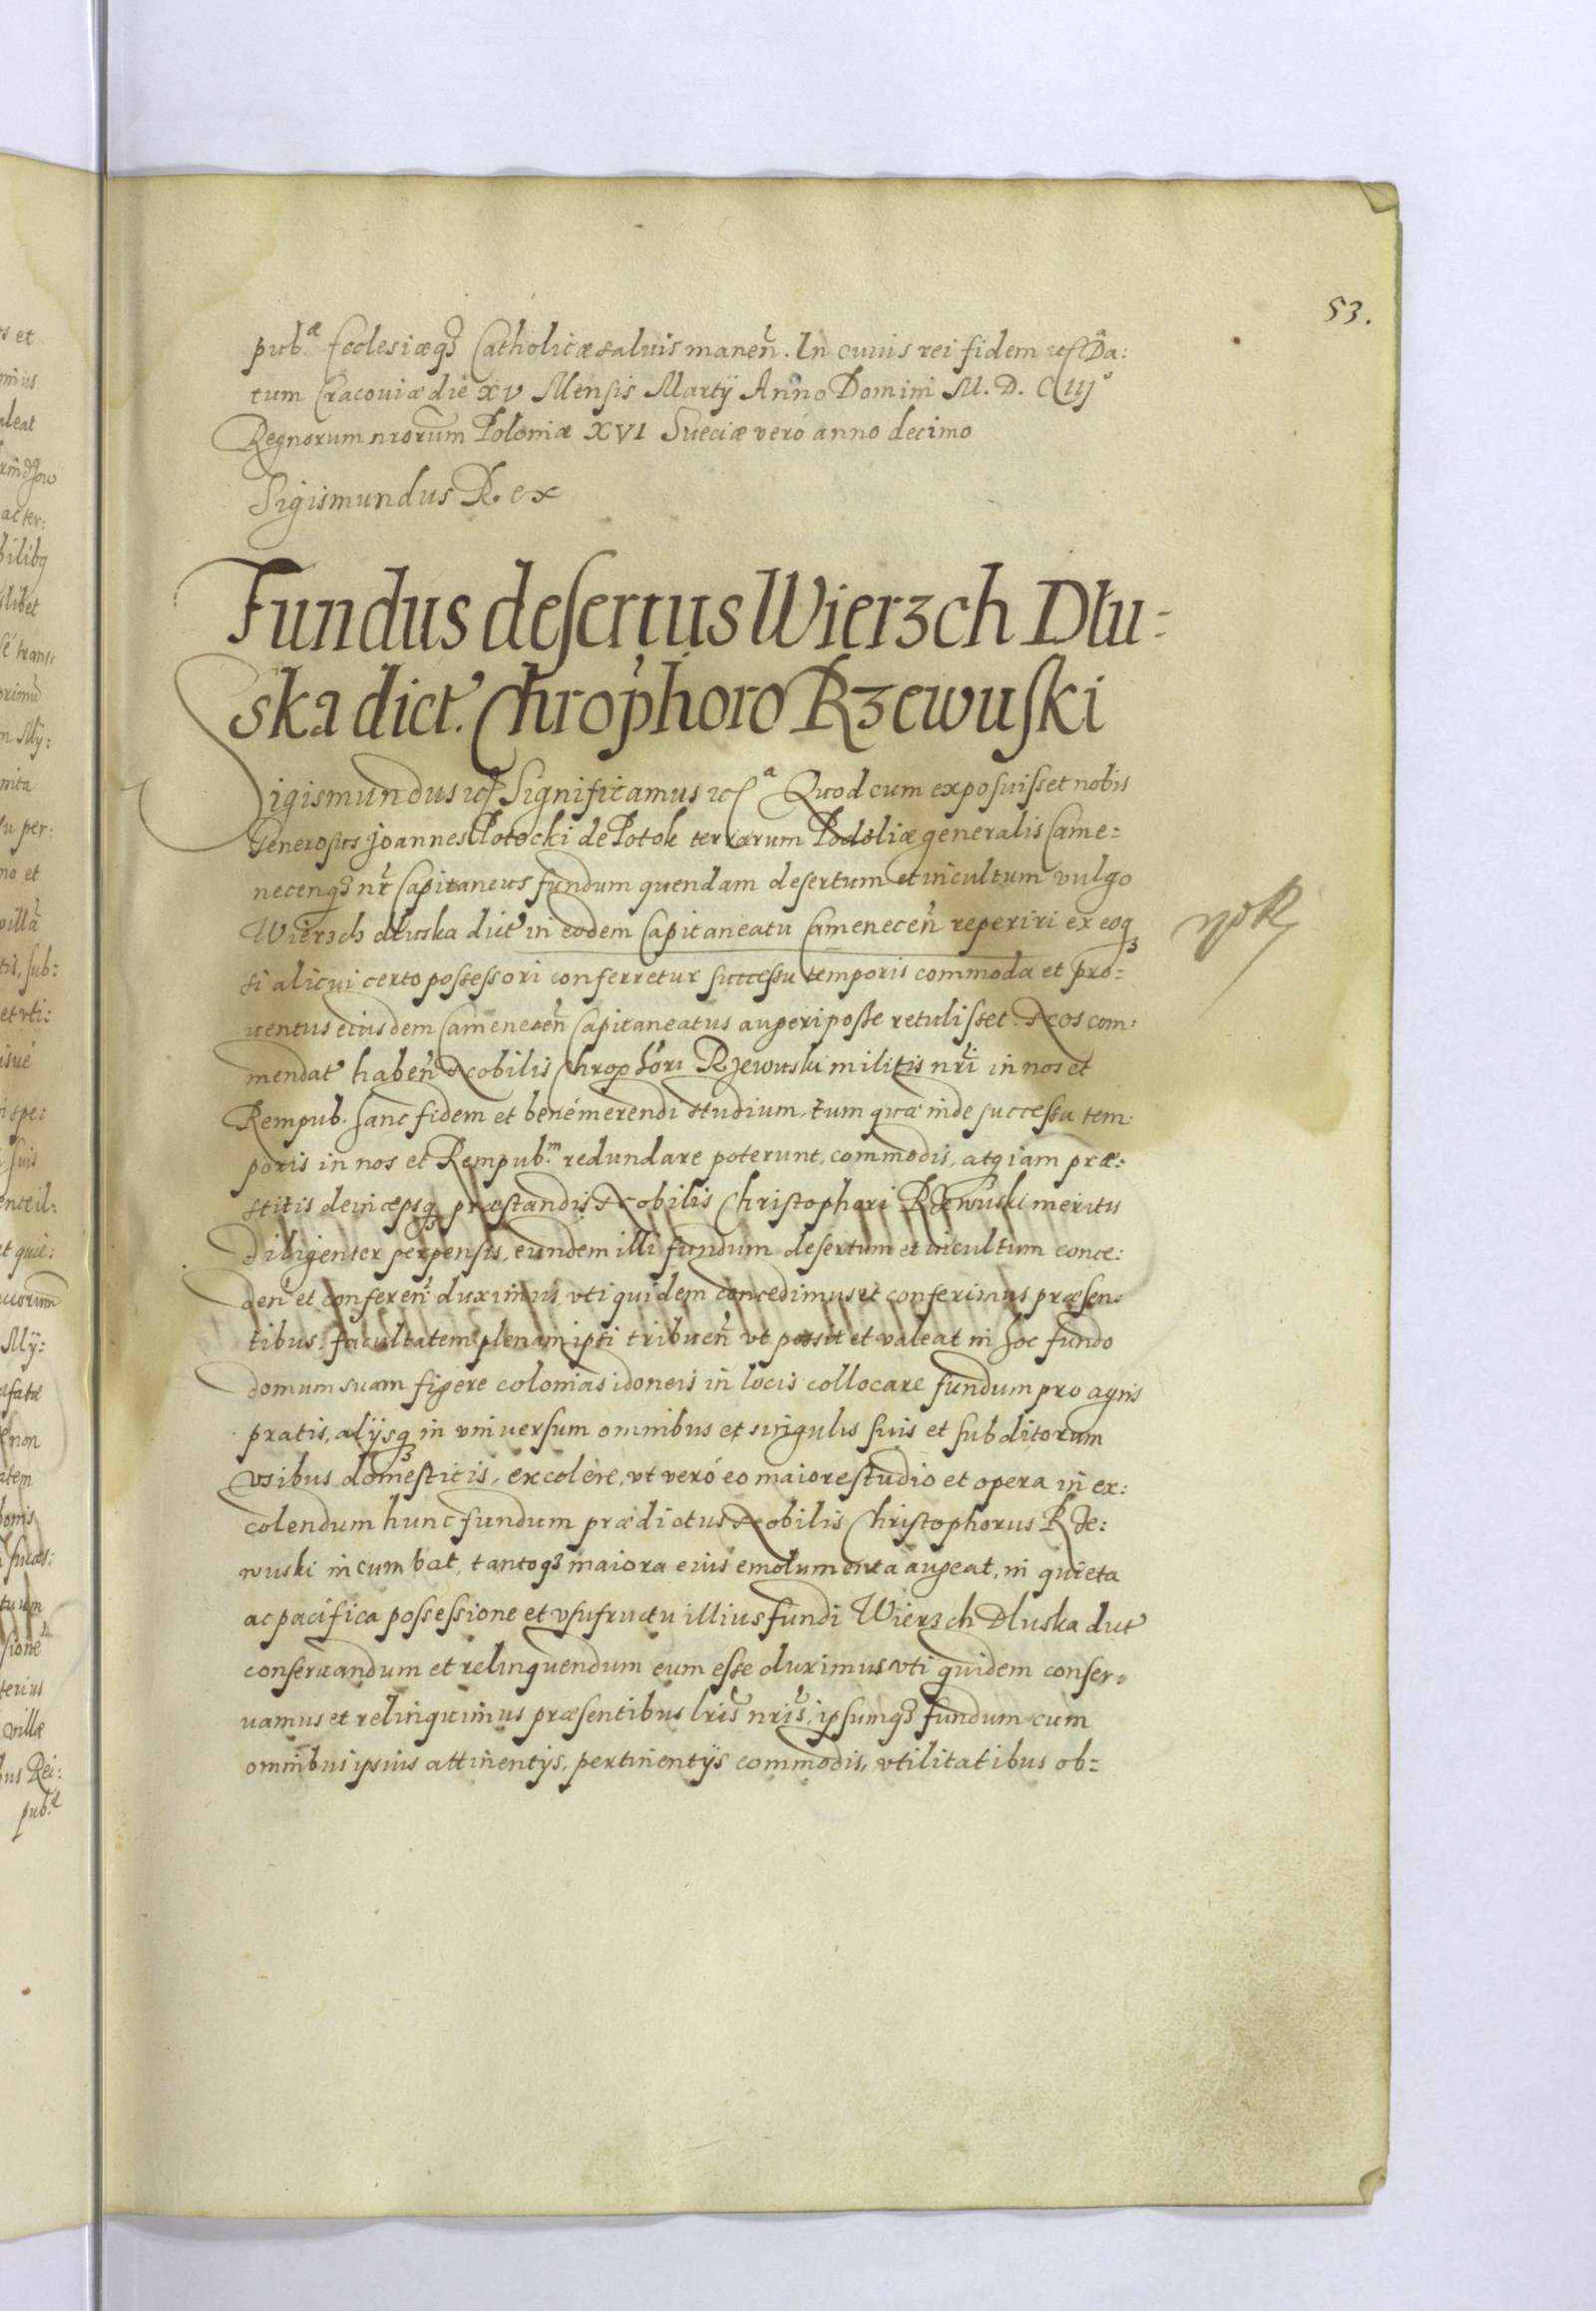 53.
pub.æ Ecclesiæq3 Catholicæ saluis manen̄. In cuius rei fidem etc Da:
tum Cracouiæ die XV Mensis Martij Anno Domini M. D. CIIJ°
Regnorum nrorum Poloniæ XVI Sueciæ vero anno decimo
Sigismundus Rex
Fundus desertus Wierzch Dłu-
ska dict. Chrophoro Rzewuski
Sigismundus etc Significamus etc a Quod cum exposuisset nobis
Generosus Joannes Potocki de Potok terrarum Podoliæ generalis Came-
necenq3 nr Capitaneus fundum quendam desertum et incultum vulgo
Wierzch dłuska dict in eodem Capitaneatu Camenecen̄ reperiri ex eoq3
si alicui certo possessori conferretur successu temporis commoda et pro-
uentus eiusdem Camenecen̄ Capitaneatus augeri posse retulisset. Nos com:
mendat haben̄ Nobilis Chrophori Rzewuski militis nri in nos et
Rempub. hanc fidem et benémerendi studium, tum quæ inde successu tem-
poris in nos et Rempub.m redundare poterunt, commodis, atq iam præ:
stitis deincepsq3 præstandis Nobilis Christophori Rzewuski meritis
diligenter perpensis, eundem illi fundum desertum et incultum conce:
den̄ et conferen̄ duximus, vti quidem concedimus et conferimus præsen-
tibus. facultatem plenam ipsi tribuen̄ vt possit et valeat in hoc fundo
domum suam figere colonias idoneis in locis collocare fundum pro agris
pratis, alijsq3 in vniuersum omnibus et singulis suis et subditorum
vsibus domesticis, excolere, vt veró eo maiore studio et opera in ex:
colendum hunc fundum prædictus Nobilis Christophorus Rze:
wuski incumbat, tantoq3 maiora eius emolumenta augeat, in quieta
ac pacifica possessione et vsufructu illius fundi Wierzch Dluska dict
conseruandum et relinquendum eum esse duximus vti quidem conser-
uamus et relinquimus præsentibus lris nris, ipsumq3 fundum cum
omnibus ipsius attinentijs, pertinentijs commodis, vtilitatibus ob-